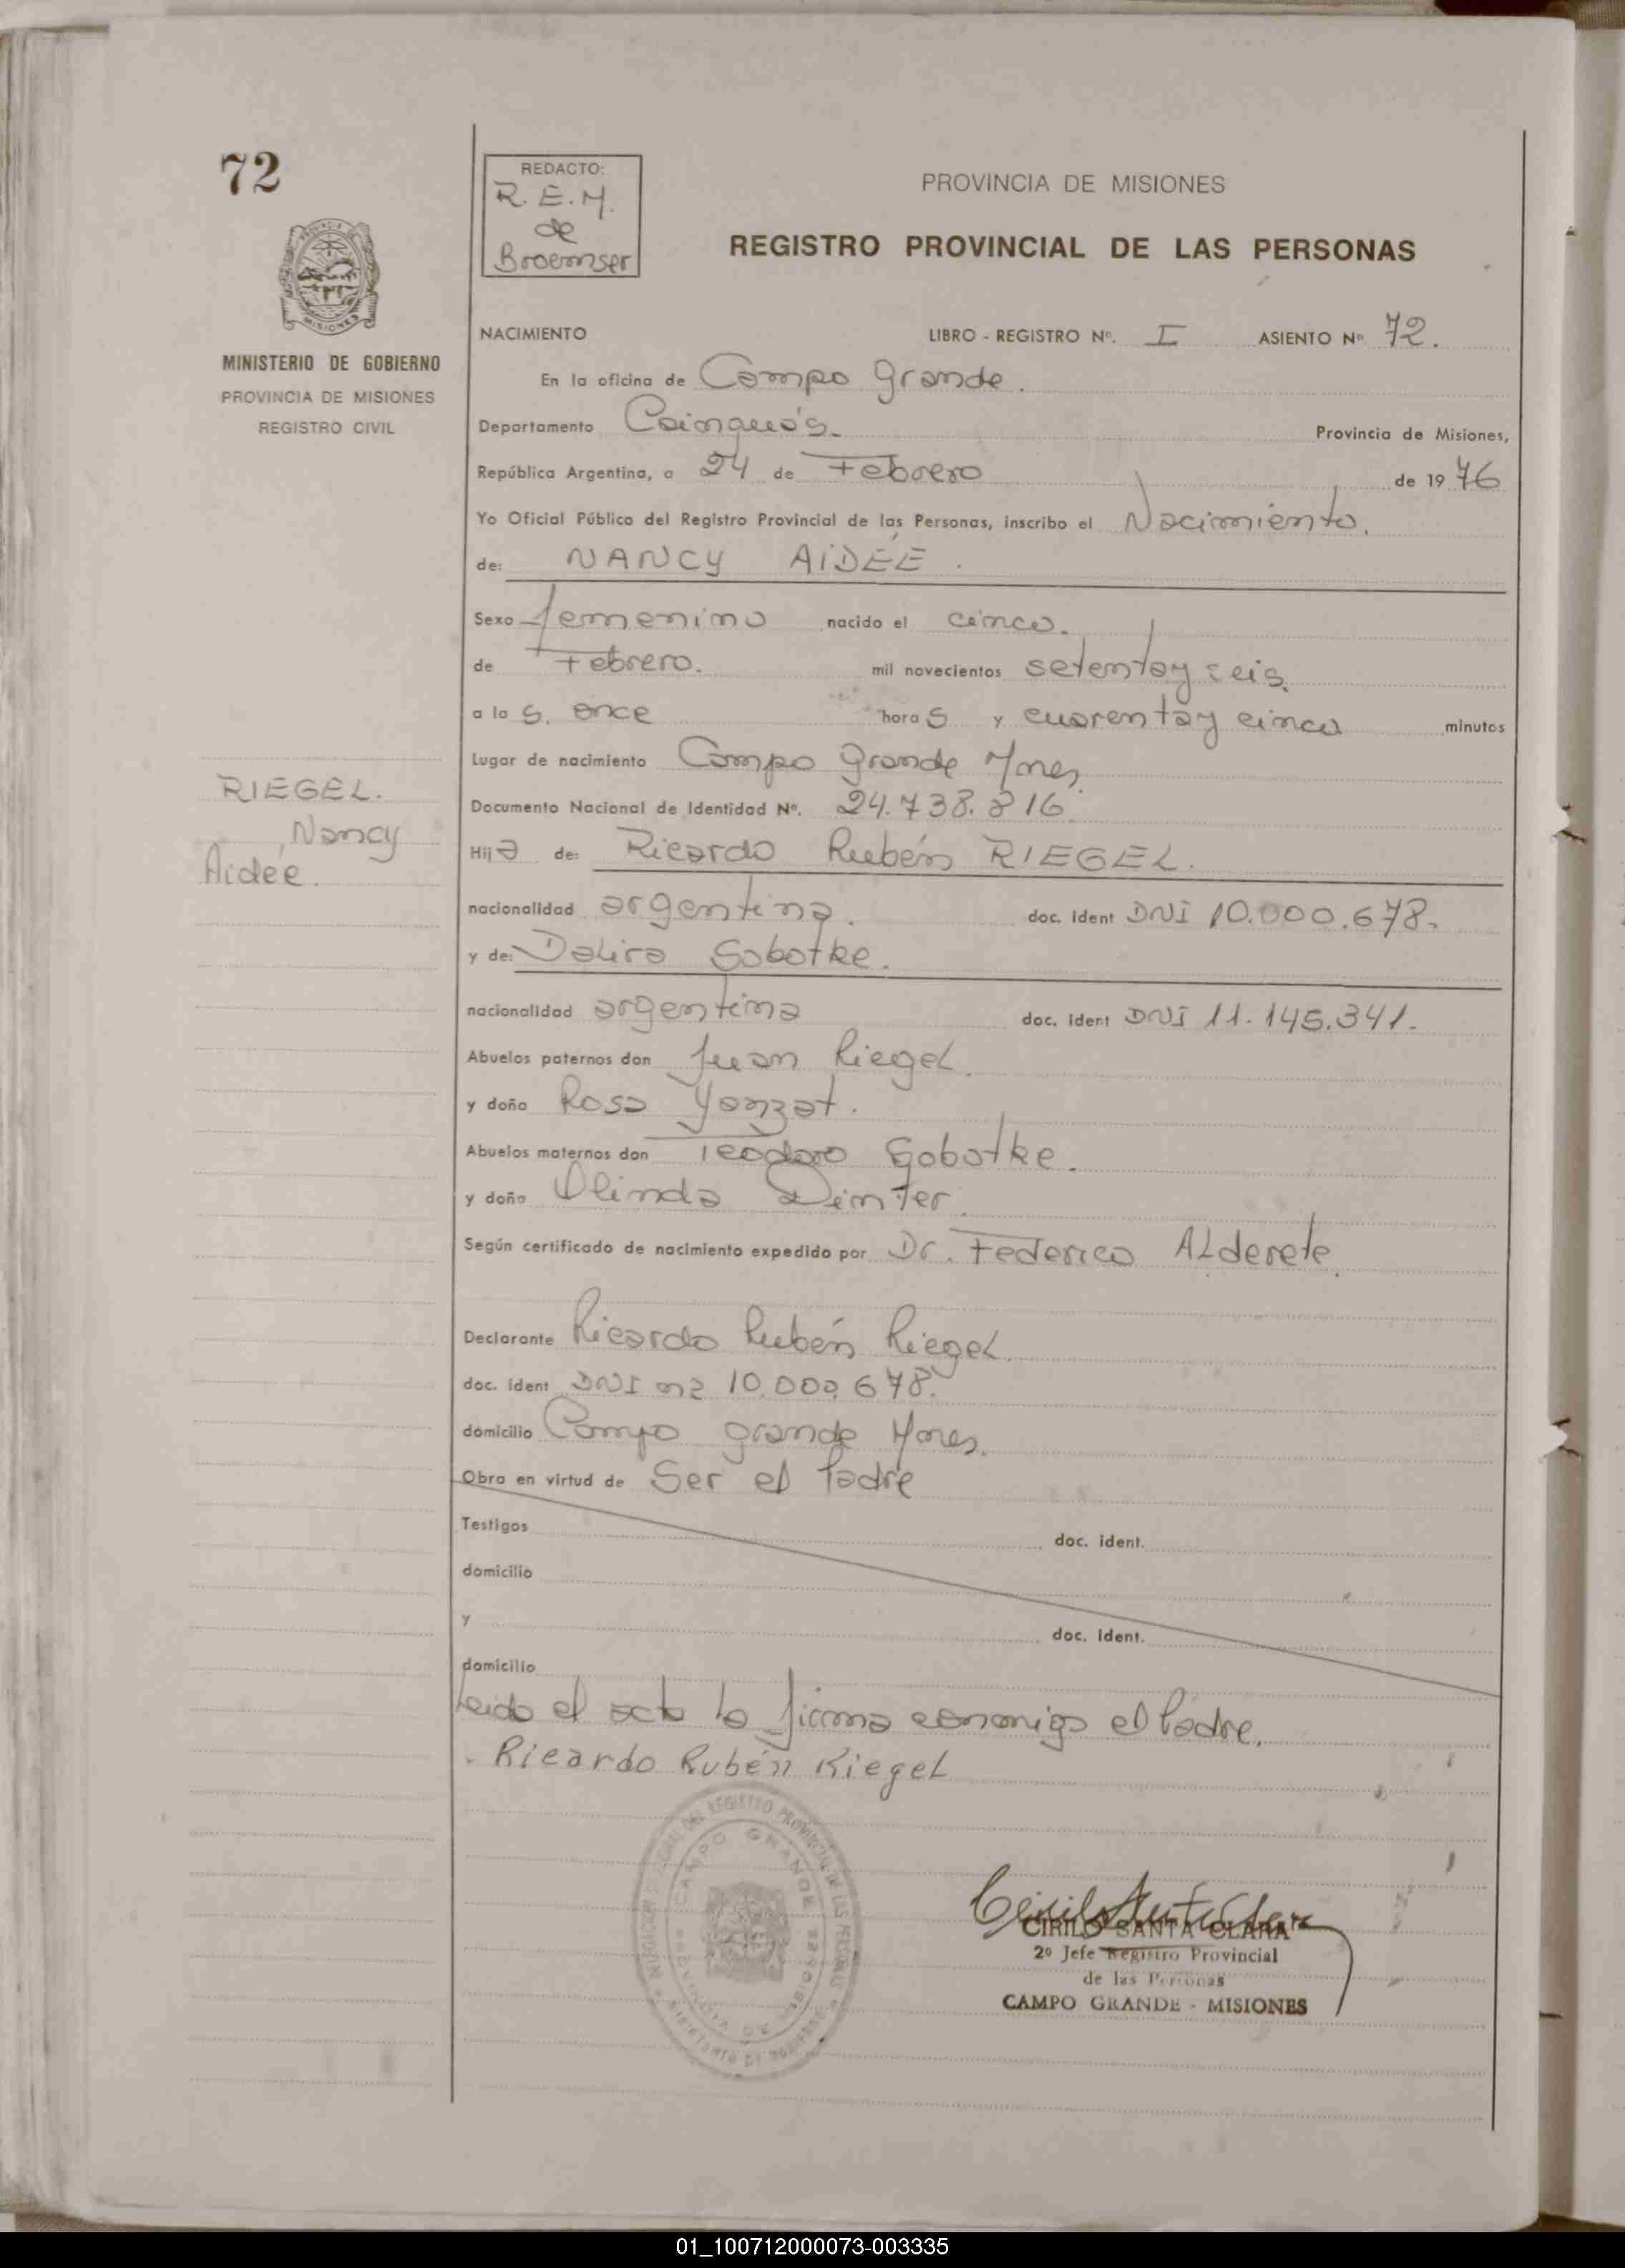 72
MINISTERIO DE GOBIERNO
PROVINCIA DE MISIONES
REGISTRO CIVIL
RIEGEL.
Nancy
Aidée.
REDACTO:
R.E.M.
de
Broemser
PROVINCIA DE MISIONES
REGISTRO PROVINCIAL DE LAS PERSONAS
NACIMIENTO LIBRO - REGISTRO Nº. I ASIENTO Nº 72.
En la oficina de Campo Grande.
Departamento Cainguás. Provincia de Misiones,
República Argentina, a 24 de Febrero de 1976
Yo Oficial Público del Registro Provincial de las Personas, inscribo el Nacimiento.
de: NANCY AIDÉE.
Sexo femenino nacido el cinco.
de Febrero. mil novecientos setenta y seis.
a las. once horas y cuarenta y cinco minutos
Lugar de nacimiento Campo Grande Mnes.
Documento Nacional de Identidad Nº. 24.738.816
Hija de: Ricardo Rubén RIEGEL.
nacionalidad argentina. doc. ident DNI 10.000.678.
y de: Dalira Sobotke.
nacionalidad argentina doc. ident DNI 11.145.341.
Abuelos paternos don Juan Riegel.
y doña Rosa Yanzat.
Abuelos maternos don Teodoro Sobotke.
y doña Olinda Dinter.
Según certificado de nacimiento expedido por Dr. Federico ALderete.
Declarante Ricardo Rubén Riegel.
doc. ident DNI nº 10.000.678.
domicilio Campo grande Mnes.
Obra en virtud de Ser el Padre
Testigos doc. ident.
domicilio
y doc. ident.
domicilio
Leida el acta la firma conmigo el Padre.
Ricardo Rubén Riegel
CAMPO GRANDE
PROVINCIA DE MISIONES
CIRILO SANTA CLARA
2º Jefe Registro Provincial
de las Personas
CAMPO GRANDE - MISIONES
01_100712000073-003335